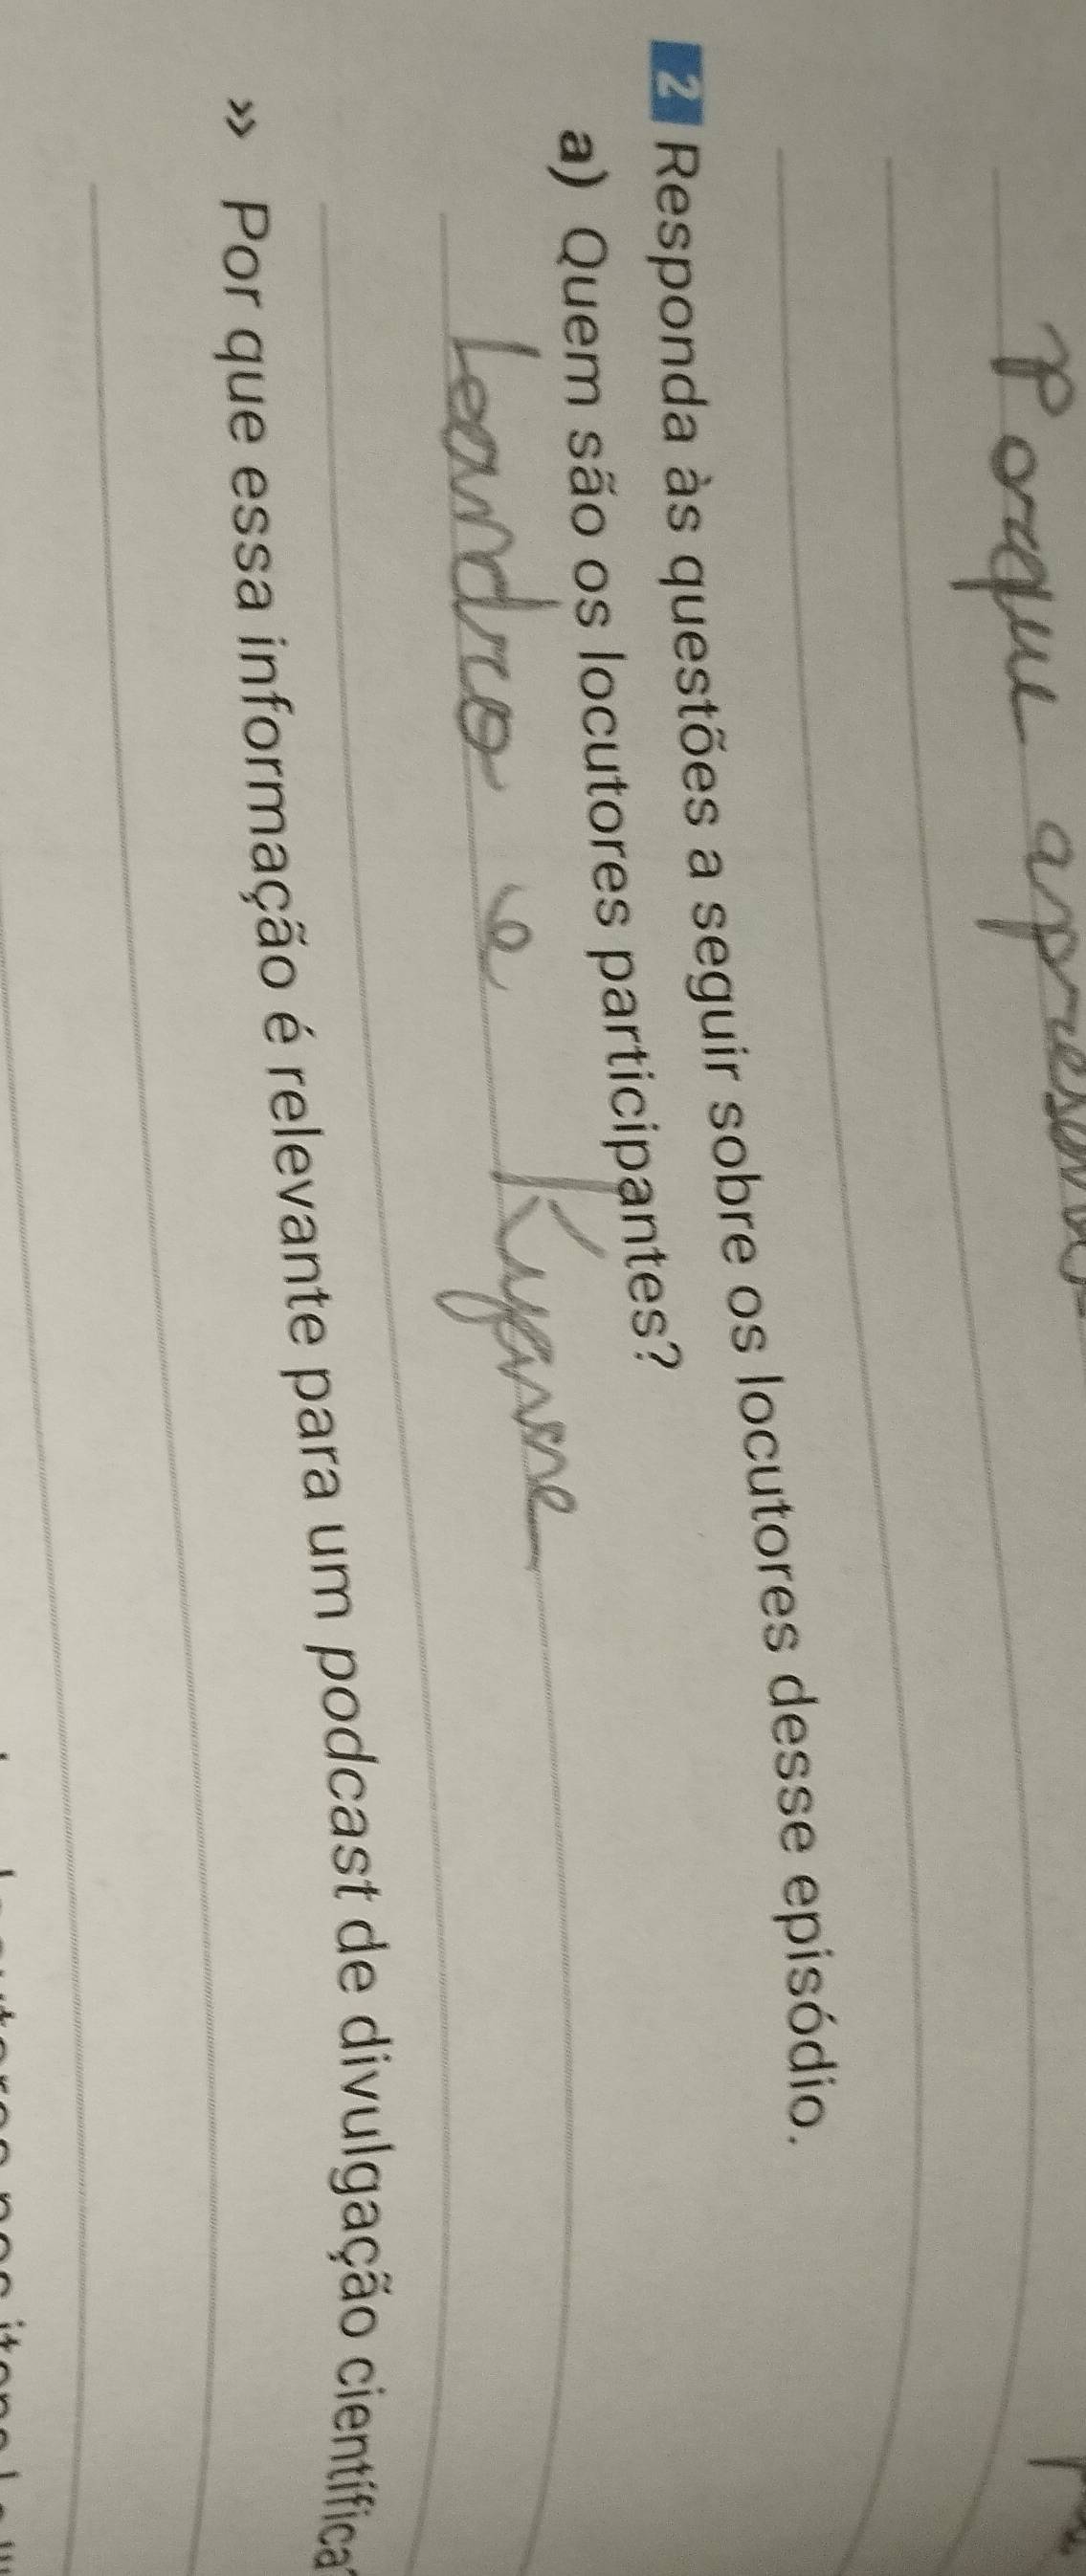 Porque apresen
2 Responda às questões a seguir sobre os locutores desse episódio.
a) Quem são os locutores participantes?
Leandro e Kyanne
» Por que essa informação é relevante para um podcast de divulgação científica